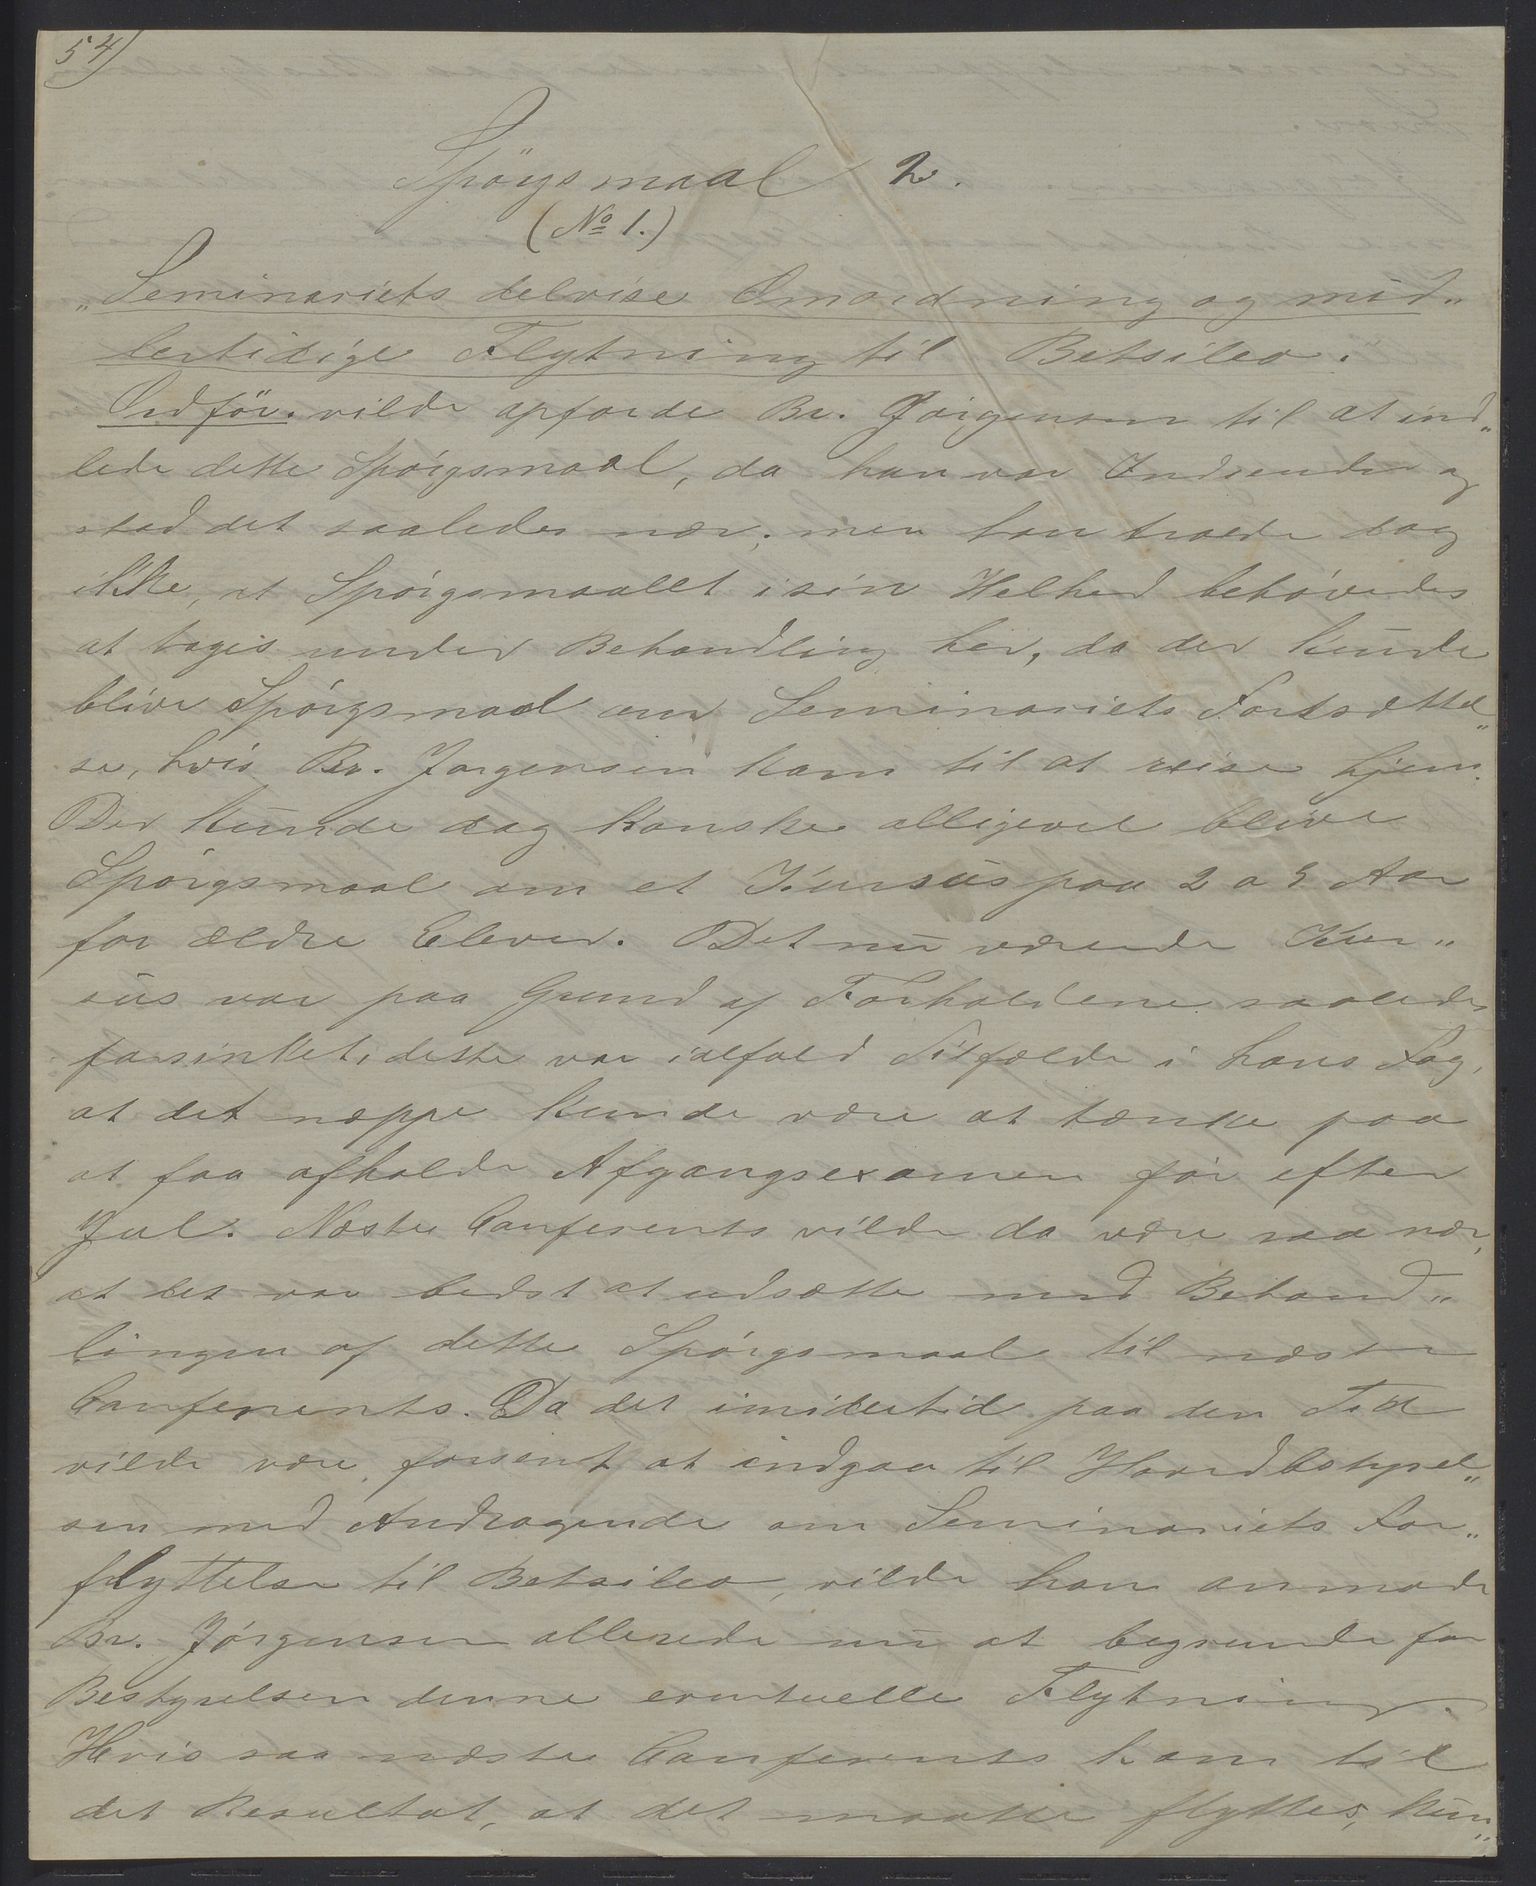 54)
Spörgsmaal 2.
(No 1.)
„Seminariets delvise Omordning og mid„
lertidige Flytning til Betsileo.
Ordför. vilde opfordre Br. Jörgensen til at ind„
lede dette Spörgsmaal, da han var Indsender og
stod det saaledes nær; men han troede dog
ikke, at Spörgsmaalet i sin Helhed behövedes
at tages under Behandling her, da der kunde
blive Spörgsmaal om Seminariets Fortsættel„
se, hvis Br. Jørgensen kom til at reise hjem.
Der kunde dog kanske alligevel blive
Spörgsmaal om et Kursus paa 2 a 3 Aar
for ældre Elever. Det nu værende Kur„
sus var paa Grund af Forholdene saaledes
forsinket, dette var ialfald Tilfælde i hans Fag,
at det neppe kunde være at tænke paa
at faa afholde Afgangsexamen för efter
Jul. Næste Conferents vilde da være saa nær,
at det var bedst at udsætte med Behand„
lingen af dette Spörgsmaal til næste
Conferents. Da det imidlertid paa den Tid
vilde være forsent at indgaa til Hovedbestyrel„
sen med Andragende om Seminariets For„
flyttelse til Betsileo, vilde han anmode
Br. Jörgensen allerede nu at begrunde for
Bestyrelsen denne eventuelle Flytning.
Hvis saa næste Conferents kom til
det Resultat, at det maatte flyttes, kun„